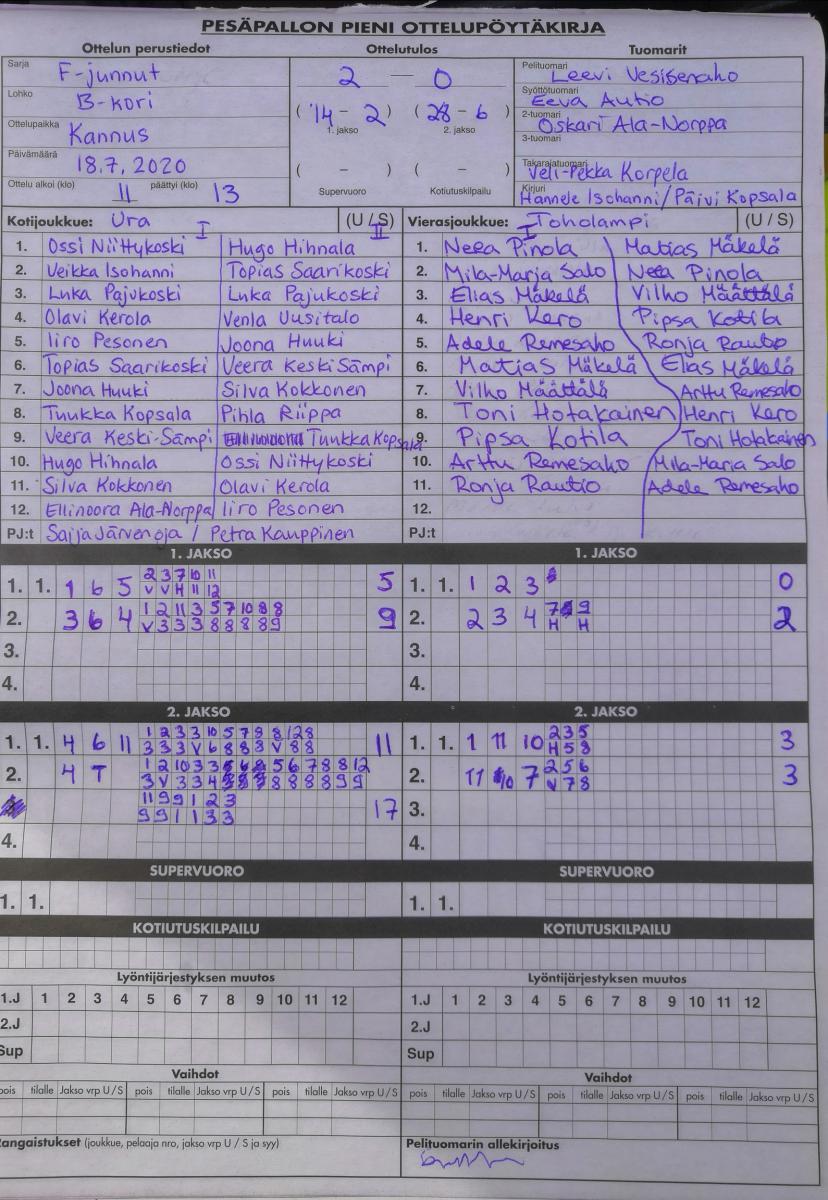 PESÄPALLON PIENI OTTELUPÖYTÄKIRJA
Ottelun perustiedot
Ottelutulos
Tuomarit
Sarja F-junnut
Lohko B-kori
Ottelupaikka Kannus
Päivämäärä 18.7.2020
Ottelu alkoi (klo) 11 päättyi (klo) 13
2 — 0
( 14 - 2 ) ( 28 - 6 )
1. jakso 2. jakso
( - ) ( - )
Supervuoro Kotiutuskilpailu
Pelituomari Leevi Vesisenaho
Syöttötuomari Eeva Autio
2-tuomari Oskari Ala-Norppa
3-tuomari
Takarajatuomari Veli-Pekka Korpela
Kirjuri Hannele Isohanni/Päivi Kopsala
Kotijoukkue: Ura I (U / S) II
1. Ossi Niittykoski Hugo Hihnala
2. Veikka Isohanni Topias Saarikoski
3. Luka Pajukoski Luka Pajukoski
4. Olavi Kerola Venla Uusitalo
5. Iiro Pesonen Joona Huuki
6. Topias Saarikoski Veera Keski Sämpi
7. Joona Huuki Silva Kokkonen
8. Tuukka Kopsala Pihla Riippa
9. Veera Keski-Sämpi Tuukka Kopsala
10. Hugo Hihnala Ossi Niittykoski
11. Silva Kokkonen Olavi Kerola
12. Ellinoora Ala-Norppa Iiro Pesonen
PJ:t Saija Järvenoja / Petra Kauppinen
Vierasjoukkue: Toholampi I (U / S)
1. Neea Pinola Matias Mäkelä
2. Mila-Marja Salo Neea Pinola
3. Elias Mäkelä Vilho Määttälä
4. Henri Kero Pipsa Kotila
5. Adele Remesaho Ronja Rautio
6. Matias Mäkelä Elias Mäkelä
7. Vilho Määttälä Arttu Remesaho
8. Toni Hotakainen Henri Kero
9. Pipsa Kotila Toni Hotakainen
10. Arttu Remesaho Mila-Maria Salo
11. Ronja Rautio Adele Remesaho
12.
PJ:t
1. JAKSO
1. 1. 1 6 5 2 3 7 10 11 5
V V H 11 12
2. 3 6 4 1 2 11 3 5 7 10 8 8 9
V 3 3 3 8 8 8 8 9
3.
4.
1. JAKSO
1. 1. 1 2 3 0
2. 2 3 4 7 9 2
H H
3.
4.
2. JAKSO
1. 1. 4 6 11 1 2 3 3 10 5 7 8 8 12 8 11
3 3 3 V 6 8 8 8 V 8 8
2. 4 T 1 2 10 3 3 5 6 7 8 8 12
3 V 3 3 4 8 8 8 8 9 9
11 9 9 1 2 3 17
9 9 1 1 3 3
4.
2. JAKSO
1. 1. 1 11 10 2 3 5 3
H 5 8
2. 11 10 7 2 5 6 3
V 7 8
3.
4.
SUPERVUORO
1. 1.
SUPERVUORO
1. 1.
KOTIUTUSKILPAILU
KOTIUTUSKILPAILU
Lyöntijärjestyksen muutos
1.J 1 2 3 4 5 6 7 8 9 10 11 12
2.J
Sup
Lyöntijärjestyksen muutos
1.J 1 2 3 4 5 6 7 8 9 10 11 12
2.J
Sup
Vaihdot
pois tilalle Jakso vrp U / S pois tilalle Jakso vrp U / S pois tilalle Jakso vrp U / S
Vaihdot
pois tilalle Jakso vrp U / S pois tilalle Jakso vrp U / S pois tilalle Jakso vrp U / S
angaistukset (joukkue, pelaaja nro, jakso vrp U / S ja syy)
Pelituomarin allekirjoitus